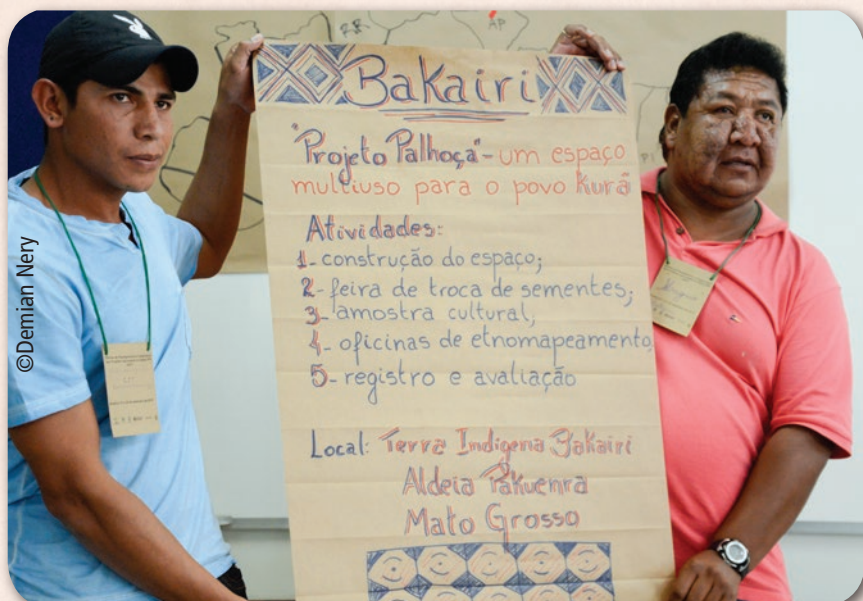 ©Demian Nery
RR
AP
PI
Bakairi
"Projeto Palhoça" - um espaço
multiuso para o povo Kurâ
Atividades:
1- construção do espaço;
2- feira de troca de sementes;
3- amostra cultural;
4- oficinas de etnomapeamento;
5- registro e avaliação
Local: Terra Indigena Bakairi
Aldeia Pakuenra
Mato Grosso